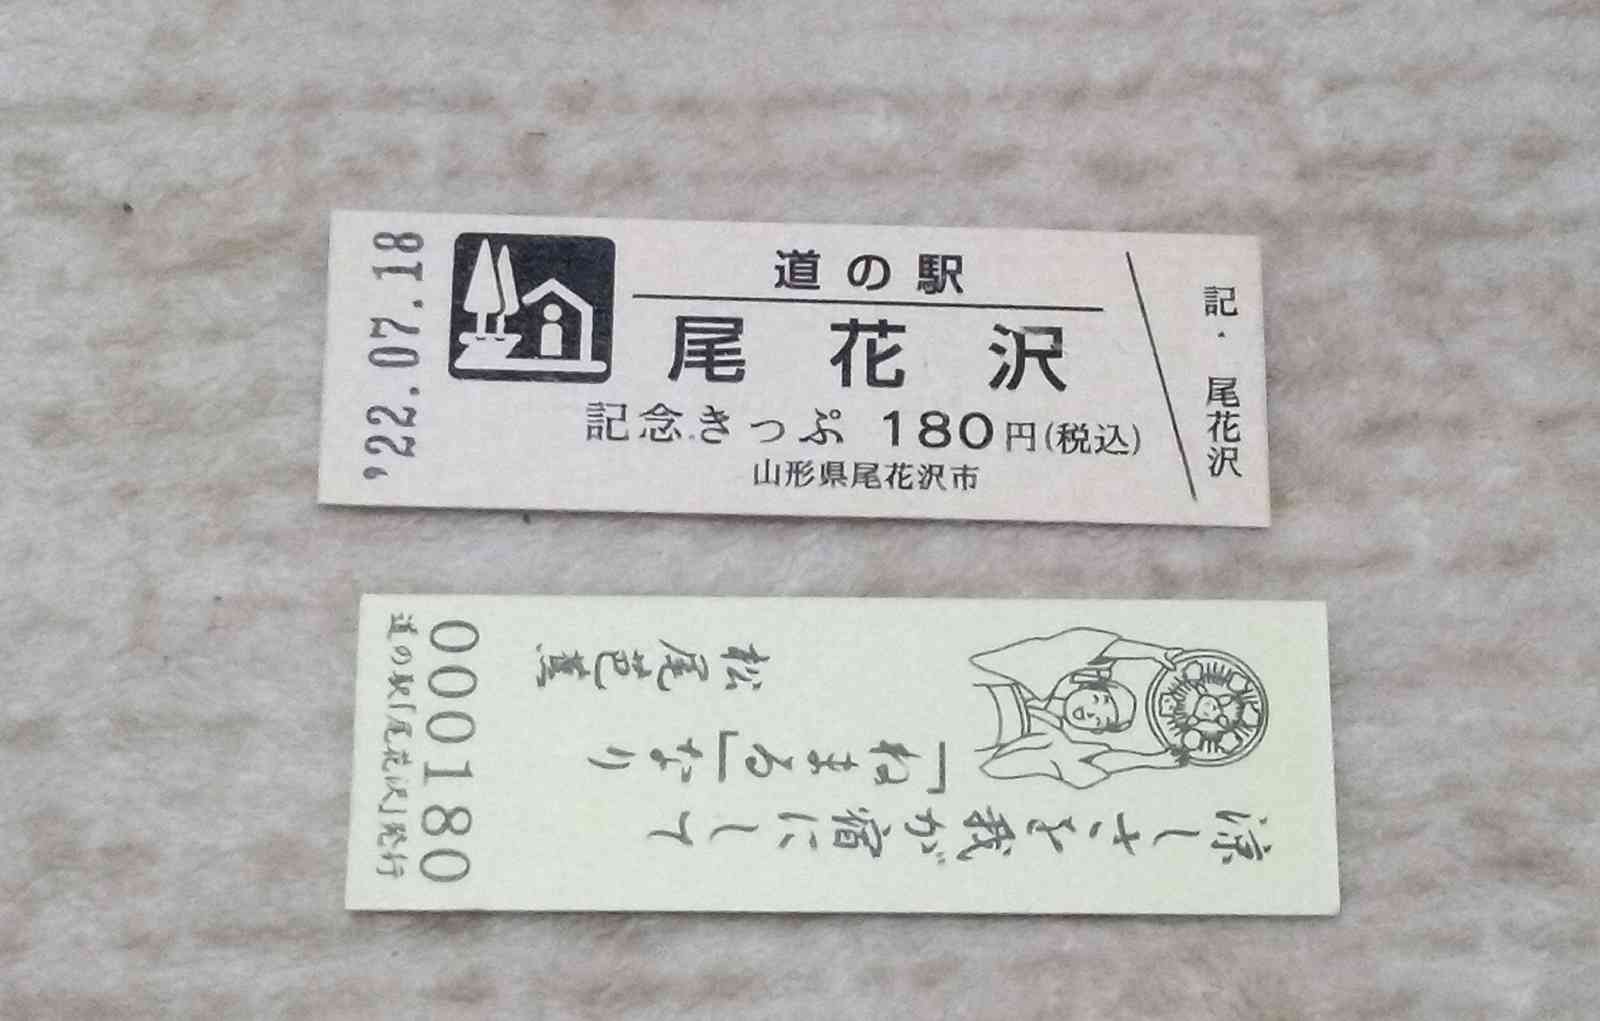 '22.07.18
道の駅
尾花沢
記念きっぷ 180円(税込)
山形県尾花沢市
記・尾花沢
涼しさを我が宿にして
「ねまる」なり
松尾芭蕉
000180
道の駅「尾花沢」発行